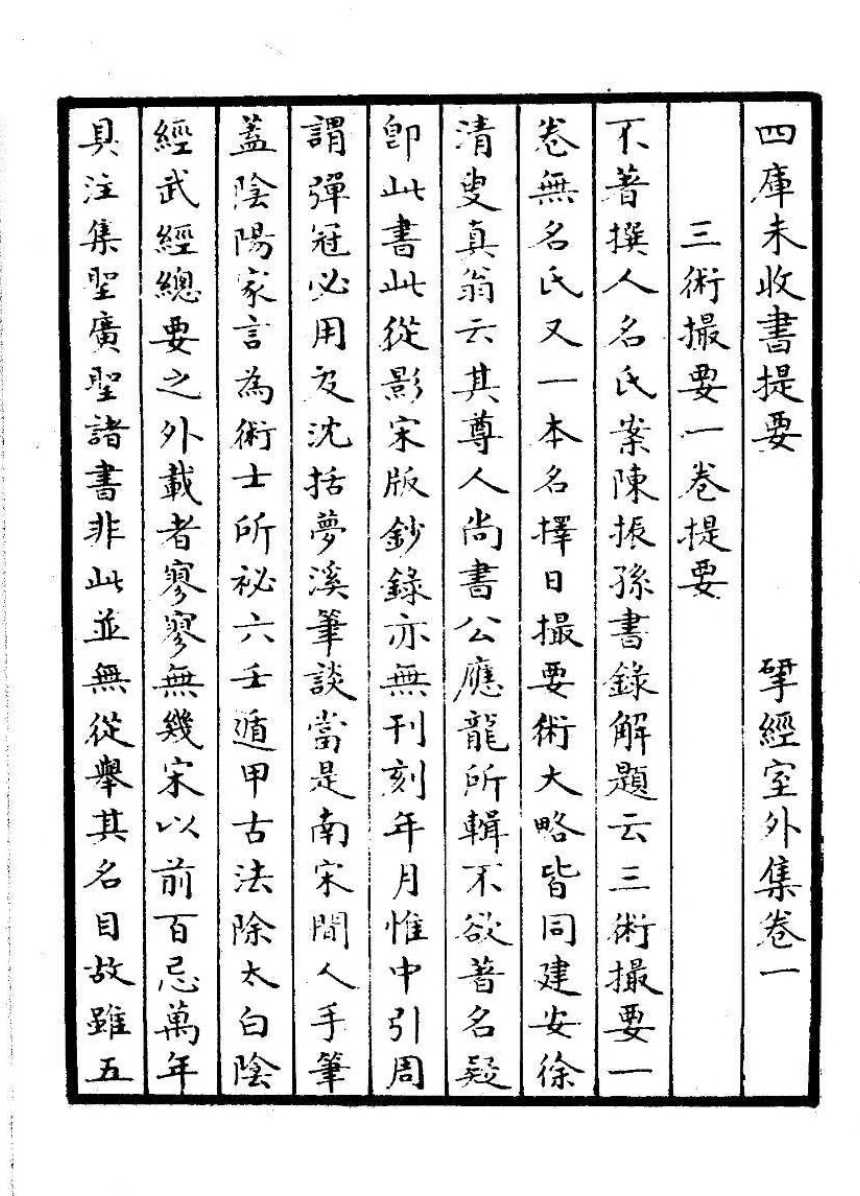 四庫未收書提要　　　　揅經室外集卷一
三術撮要一卷提要
不著撰人名氏案陳振孫書錄解題云三術撮要一
卷無名氏又一本名擇日撮要術大略皆同建安徐
清叟真翁云其尊人尚書公應龍所輯不欲著名疑
卽此書此從影宋版鈔錄亦無刊刻年月惟中引周
謂彈冠必用及沈括夢溪筆談當是南宋間人手筆
蓋陰陽家言為術士所祕六壬遁甲古法除太白陰
經武經總要之外載者寥寥無幾宋以前百忌萬年
具注集聖廣聖諸書非此並無從舉其名目故雖五